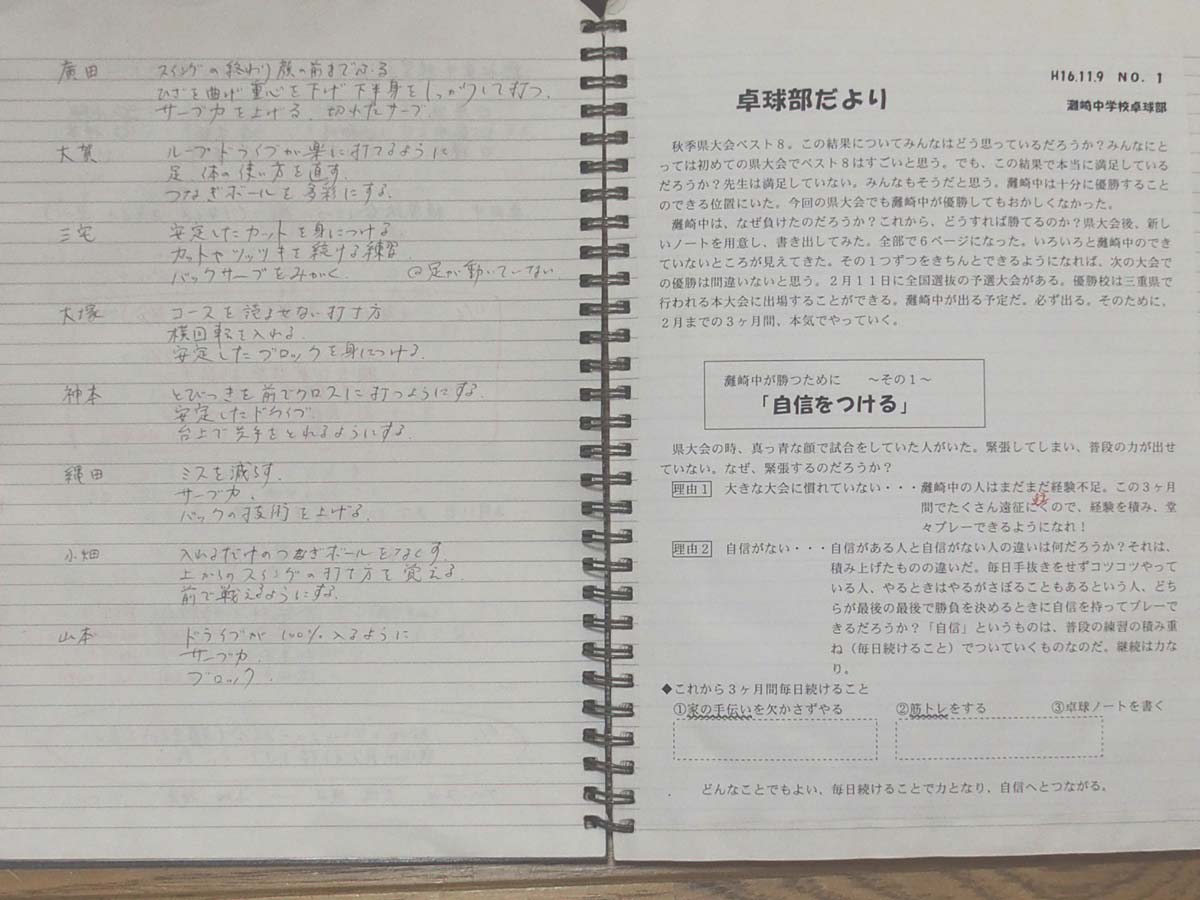 廣田 スイングの終わり顔の前までふる
ひざを曲げ重心を下げ下半身をしっかりして打つ。
サーブ力を上げる。切れたサーブ。
大賀 ループドライブが楽に打てるように
足、体の使い方を直す。
つなぎボールを多彩にする。
三宅 安定したカットを身につける
カットやツッツキを続ける練習
バックサーブをみがく。 @足が動いていない
大塚 コースを読ませない打ち方
横回転を入れる。
安定したブロックを身につける。
神本 とびつきを前でクロスに打つようにする。
安定したドライブ
台上で先手をとれるようにする。
縄田 ミスを減らす。
サーブ力、
バックの技術を上げる。
小畑 入れるだけのつなぎボールをなくす。
上からのスイングの打ち方を覚える
前で戦えるようにする。
山本 ドライブが100%入るように
サーブ力、
ブロック、
H16.11.9 NO.1
卓球部だより
灘崎中学校卓球部
秋季県大会ベスト8。この結果についてみんなはどう思っているだろうか?みんなにと
っては初めての県大会でベスト8はすごいと思う。でも、この結果で本当に満足している
だろうか?先生は満足していない。みんなもそうだと思う。灘崎中は十分に優勝すること
のできる位置にいた。今回の県大会でも灘崎中が優勝してもおかしくなかった。
灘崎中は、なぜ負けたのだろうか?これから、どうすれば勝てるのか?県大会後、新し
いノートを用意し、書き出してみた。全部で6ページになった。いろいろと灘崎中のでき
ていないところが見えてきた。その1つずつをきちんとできるようになれば、次の大会で
の優勝は間違いないと思う。2月11日に全国選抜の予選大会がある。優勝校は三重県で
行われる本大会に出場することができる。灘崎中が出る予定だ。必ず出る。そのために、
2月までの3ヶ月間、本気でやっていく。
灘崎中が勝つために ~その1~
「自信をつける」
県大会の時、真っ青な顔で試合をしていた人がいた。緊張してしまい、普段の力が出せ
ていない。なぜ、緊張するのだろうか?
理由1 大きな大会に慣れていない・・・灘崎中の人はまだまだ経験不足。この3ヶ月
間でたくさん遠征にくので、経験を積み、堂
々プレーできるようになれ!
理由2 自信がない・・・自信がある人と自信がない人の違いは何だろうか?それは、
積み上げたものの違いだ。毎日手抜きをせずコツコツやって
いる人、やるときはやるがさぼることもあるという人、どち
らが最後の最後で勝負を決めるときに自信を持ってプレーで
きるだろうか?「自信」というものは、普段の練習の積み重
ね(毎日続けること)でついていくものなのだ。継続は力な
り。
◆これから3ヶ月間毎日続けること
①家の手伝いを欠かさずやる ②筋トレをする ③卓球ノートを書く
どんなことでもよい、毎日続けることで力となり、自信へとつながる。